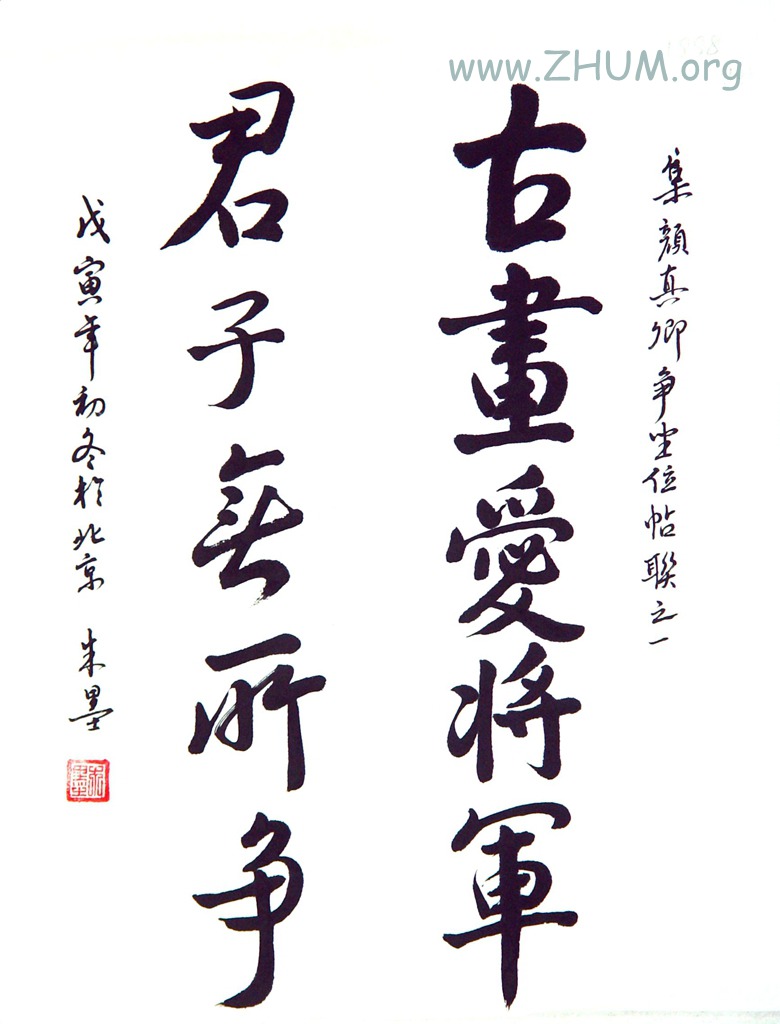 www.ZHUM.org
集顏真卿争坐位帖聯之一
古畫愛將軍
君子無所争
戊寅年初冬於北京 朱墨